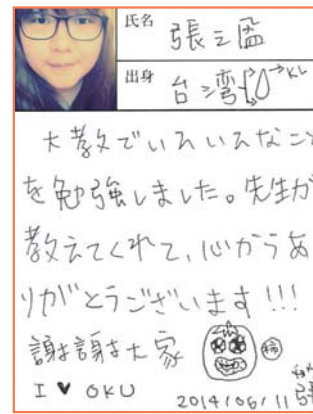 氏名 張云
出身 台湾 KL
大教でいろいろなこと
を勉強しました。先生が
教えてくれて、心からあ
りがとうございます!!!
謝謝大家 柿
I ♥ OKU 2014/06/11